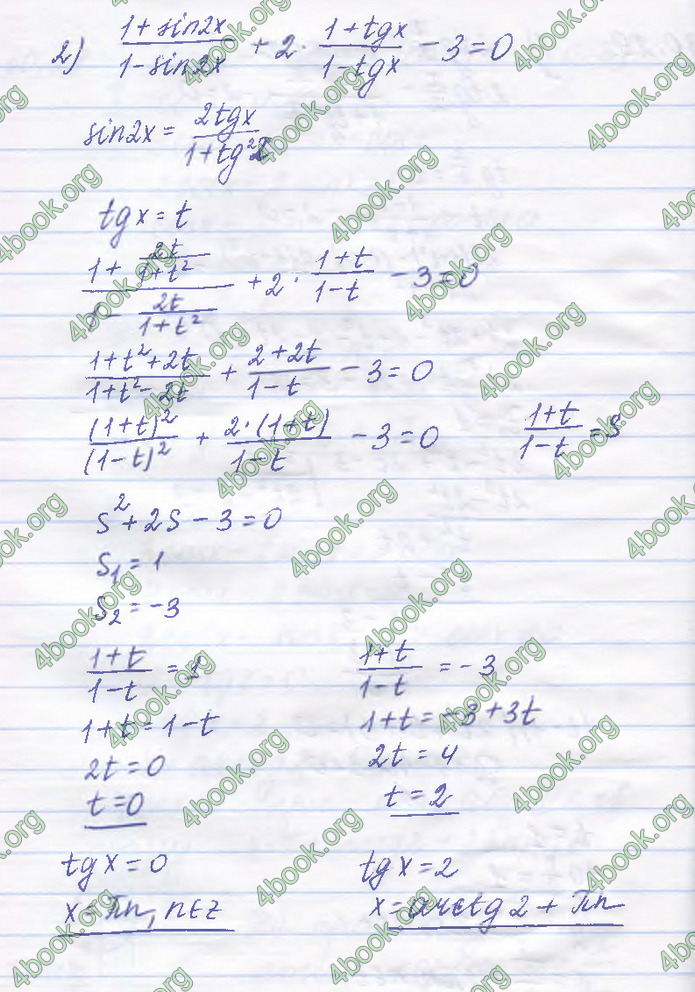 2) (1 + sin2x)/(1 - sin2x) + 2 · (1 + tgx)/(1 - tgx) - 3 = 0
sin2x = 2tgx/(1 + tg²x)
tgx = t
(1 + 2t/(1+t²))/(1 - 2t/(1+t²)) + 2 · (1+t)/(1-t) - 3 = 0
(1+t²+2t)/(1+t²-2t) + (2+2t)/(1-t) - 3 = 0
(1+t)²/(1-t)² + 2·(1+t)/(1-t) - 3 = 0 (1+t)/(1-t) = S
S² + 2S - 3 = 0
S₁ = 1
S₂ = -3
(1+t)/(1-t) = 1 (1+t)/(1-t) = -3
1+t = 1-t 1+t = -3+3t
2t = 0 2t = 4
t = 0 t = 2
tgx = 0 tgx = 2
x = πn, n∈Z x = arctg2 + πn
4book.org